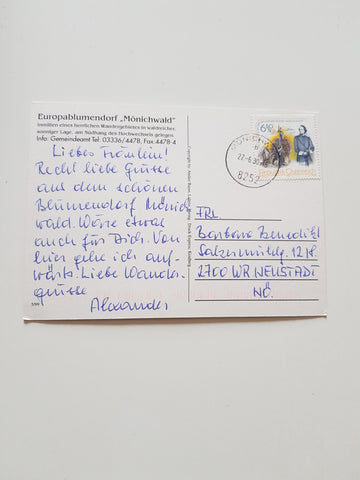 Europablumendorf „Mönichwald"
inmitten eines herrlichen Wandergebietes in waldreicher,
sonniger Lage, am Südhang des Hochwechsels gelegen
Info: Gemeindeamt Tel: 03336/4478, Fax:4478-4
Liebes Fräulein!
Recht liebe Grüsse
aus dem schönen
Blumendorf Mönich
wald. Wäre etwas
auch für Dich. Von
hier gehe ich auf-
wärts. Liebe Wander-
grüsse
Alexander
5/99
8252
FRL.
Barbara Benedikt
12
2700 WR NEUSTADT
NÖ.